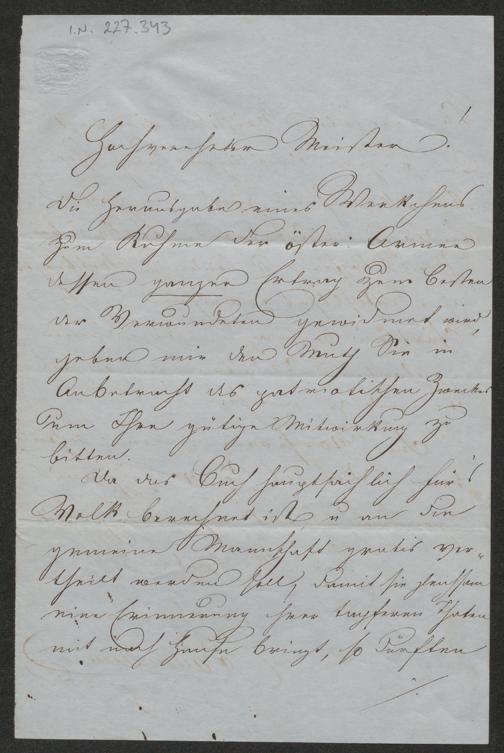 I.N. 227.343
Hochverehrter Meister!
Die Herausgabe eines Werkchens
zum Ruhme der öster: Armee
dessen ganzer Ertrag zum besten
der Verwundeten gewidmet wird,
geben mir den Muth Sie in
Anbetracht des patriotischen Zweckes
um Ihre gütige Mitwirkung zu
bitten.
Da das Buch hauptsächlich für's
Volk berechnet ist u an die
gemeine Mannschaft gratis ver=
theilt werden soll, damit sie
eine Erinnerung ihrer tapferen Thaten
mit nach Hause bringt, so dürften